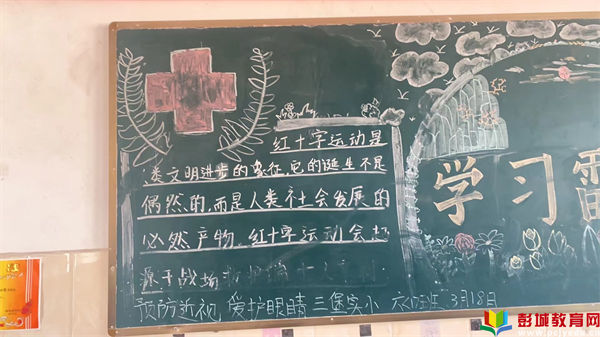 红十字运动是
类文明进步的象征,它的诞生不是
偶然的,而是人类社会发展的
必然产物,红十字运动会起
源于战场
预防近视 爱护眼睛 三堡实小 3月18日
学习雷
彭城教育网